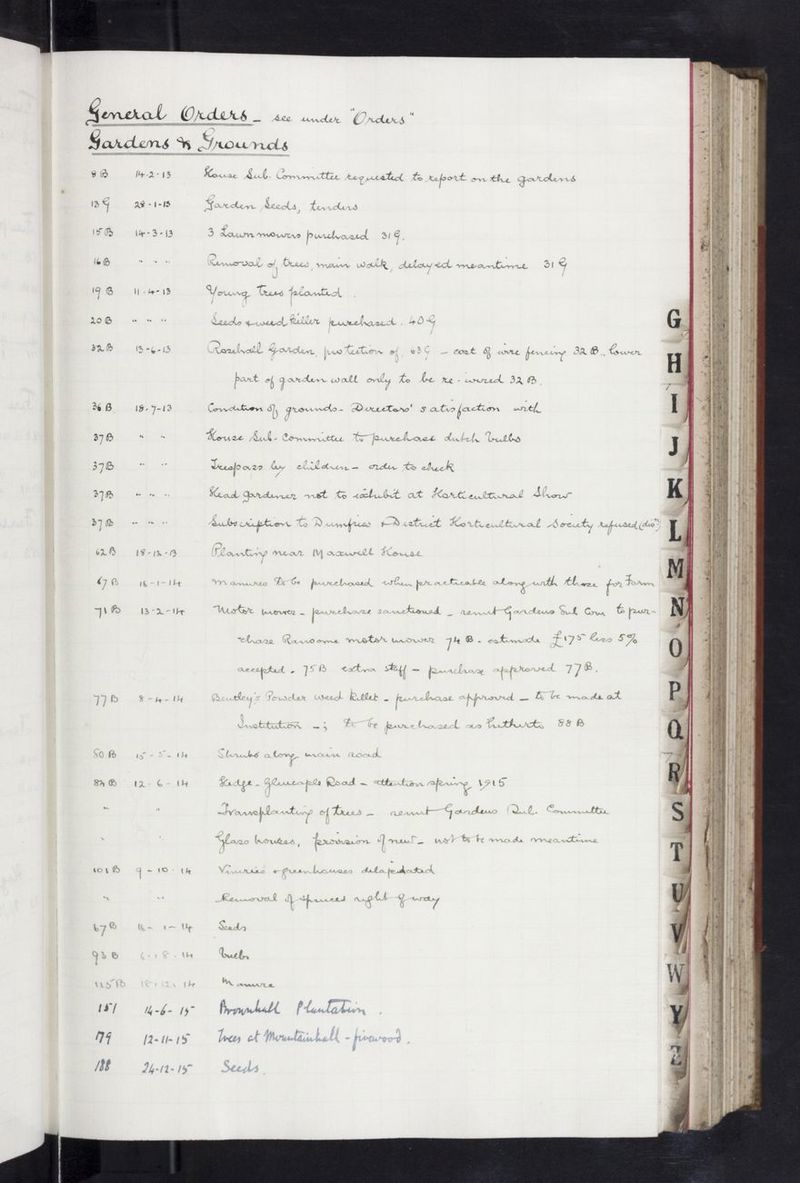 General Orders - see under "Orders"
Gardens & Grounds
8 B 14-2-13 House Sub. Committee requested to report on the gardens
13 G 28-1-13 Garden Seeds, tenders
15 B 14-3-13 3 Lawn mowers purchased 31 G.
16 B " " " Removal of trees, main walk, delayed meantime 31 G
19 B 11-4-13 Young Trees planted.
20 B " " " Seeds & weed killer purchased. 40 G
32 B 13-6-13 Rosehall Garden, protection of, 63 G - cost of wire fencing 32 B., lower
part of garden wall only to be re-wired 32 B.
36 B 18-7-13 Condition of grounds - Directors' satisfaction with
37 B " " House Sub-Committee to purchase dutch bulbs
37 B " " Trespass by children - order to check
37 B " " " Head gardener not to exhibit at Horticultural Show
37 B " " " Subscription to Dumfries & District Horticultural Society refused
62 B 18-12-13 Planting near Maxwell House
67 B 16-1-14 Manures to be purchased when practicable along with those for Farm
71 B 13-2-14 Motor mower - purchase sanctioned - remit Gardens Sub Com to pur-
chase Ransome motor mower 74 B - estimate £175 less 5%
accepted. 75 B extra staff - purchase approved 77 B.
77 B 8-4-14 Bentley's Powder weed killer - purchase approved - to be made at
Institution -; to be purchased as hitherto 88 B
80 B 15-5-14 Shrubs along main road
84 B 12-6-14 Hedge - Glencaple Road - attention spring 1915
" " Transplanting of trees - remit Gardens Sub. Committee
" " Glass houses, provision of new - not to be made meantime
101 B 9-10-14 Vineries & greenhouses delapidated
" " Removal of spruces right of way
67 B 16-1-14 Seeds
93 B 14 Bulbs
115 B 18-12-14 Manure
151 14-6-15 Brownhall Plantation.
179 12-11-15 Trees at Mountainhall - firewood.
188 24-12-15 Seeds.
G
H
I
J
K
L
M
N
O
P
Q
R
S
T
U
V
W
Y
Z